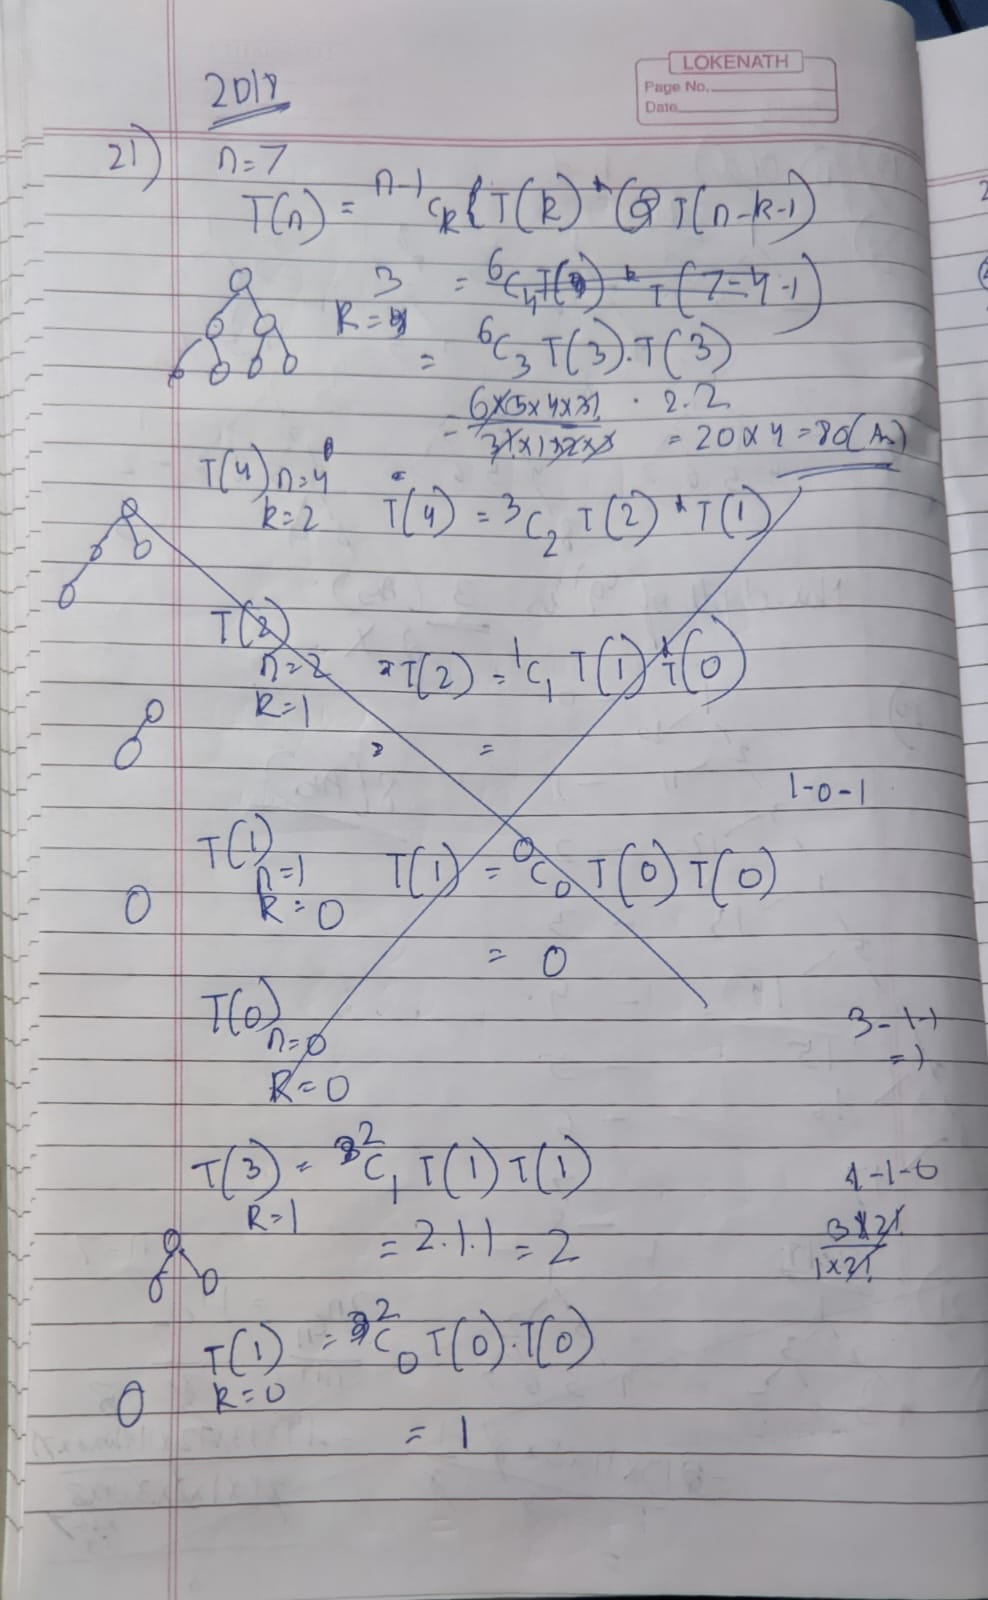 2018
LOKENATH
Page No.
Date
21) n=7
T(n) = n-1CK { T(k) * T(n-k-1)
3 = 6C4 T( ) * T(7-4-1)
R=
= 6C3 T(3).T(3)
= 6x5x4x3! . 2.2
= 20x4 = 80 (Ans)
T(4) n=4
k=2 T(4) = 3C2 T(2) * T(1)
T(2)
n=2 T(2) = 1C1 T(1) * T(0)
R=1
=
1-0-1
T(1)
n=1 T(1) = 0C0 T(0) T(0)
R=0
= 0
T(0)
n=0
R=0
3-1-1
=1
T(3) = 2C1 T(1) T(1)
R=1
1-1-0
= 2.1.1 = 2
3x2!
1x2!
T(1) = 2C0 T(0).T(0)
R=0
= 1